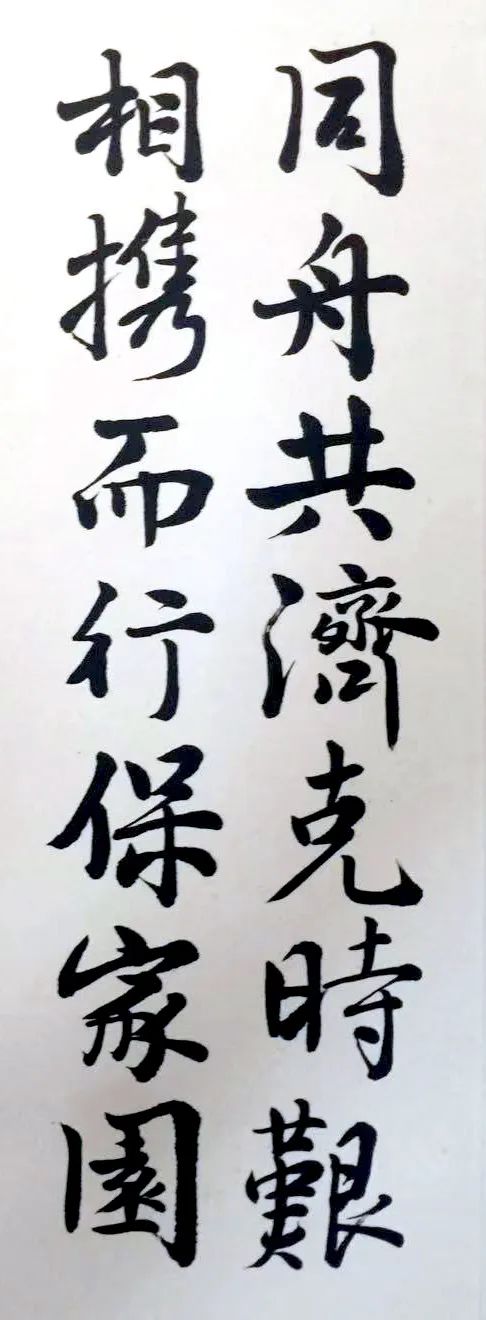 同舟共濟克時艱
相攜而行保家園